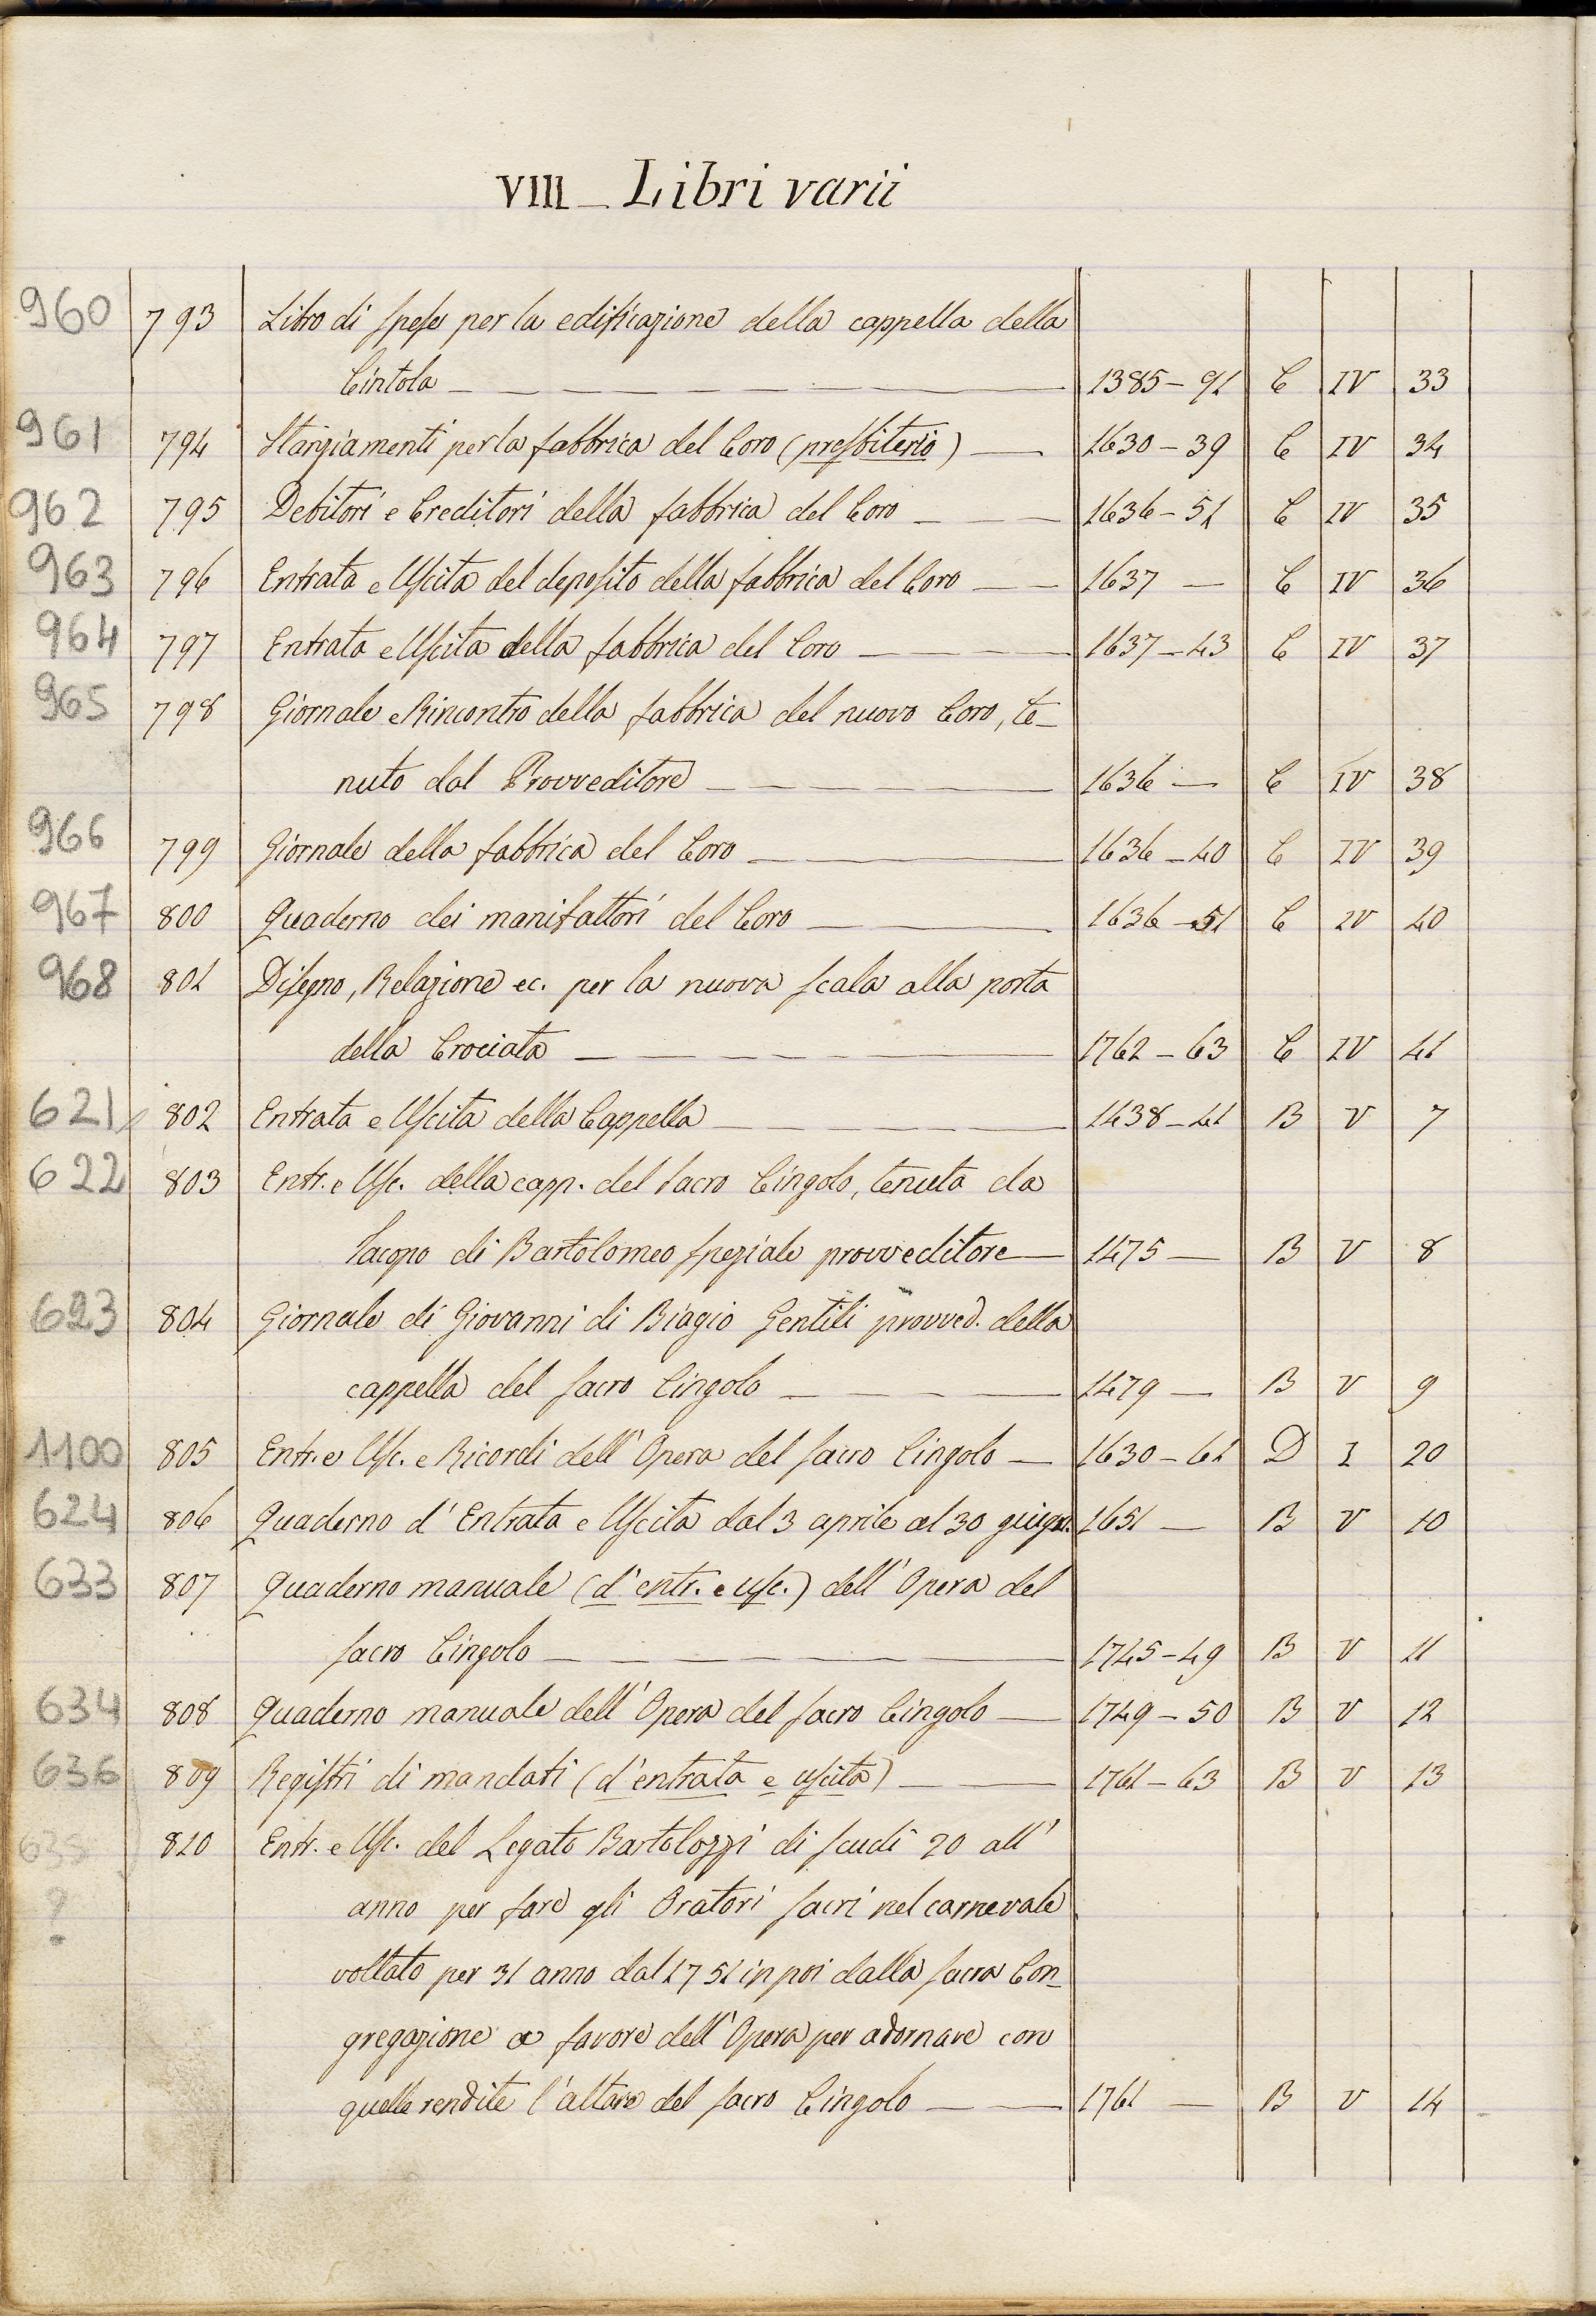 VIII _ Libri varii
960 793 Libro di spese per la edificazione della cappella della
Cintola 1385-91 C IV 33
961 794 Stanziamenti per la fabbrica del Coro (presbiterio) 1630-39 C IV 34
962 795 Debitori e Creditori della fabbrica del Coro 1636-51 C IV 35
963 796 Entrata e Uscita del deposito della fabbrica del Coro 1637 — C IV 36
964 797 Entrata e Uscita della fabbrica del Coro 1637-43 C IV 37
965 798 Giornale e Rincontro della fabbrica del nuovo Coro, te-
nuto dal Provveditore 1636 — C IV 38
966 799 Giornale della fabbrica del Coro 1636-40 C IV 39
967 800 Quaderno dei manifattori del Coro 1636-51 C IV 40
968 801 Disegno, Relazione ec. per la nuova scala alla porta
della Crociata 1762-63 C IV 41
621 802 Entrata e Uscita della Cappella 1438-41 B V 7
622 803 Entr. e Usc. della capp. del Sacro Cingolo, tenuta da
Iacopo di Bartolomeo speziale provveditore 1475 — B V 8
623 804 Giornale di Giovanni di Biagio Gentili provved. della
cappella del sacro Cingolo 1479 — B V 9
1100 805 Entr. e Usc. e Ricordi dell' Opera del sacro Cingolo 1630-61 D I 20
624 806 Quaderno d' Entrata e Uscita dal 3 aprile al 30 giugn. 1651 — B V 10
633 807 Quaderno manuale (d' entr. e usc.) dell' Opera del
sacro Cingolo 1745-49 B V 11
634 808 Quaderno manuale dell' Opera del sacro Cingolo 1749-50 B V 12
636 809 Registri di mandati (d' entrata e uscita) 1761-63 B V 13
635 810 Entr. e Usc. del Legato Bartolozzi di scudi 20 all'
? anno per fare gli Oratori sacri nel carnevale
voltato per 31 anno dal 1751 in poi dalla sacra Con-
gregazione a favore dell' Opera per adornare con
quelle rendite l' altare del sacro Cingolo 1761 — B V 14